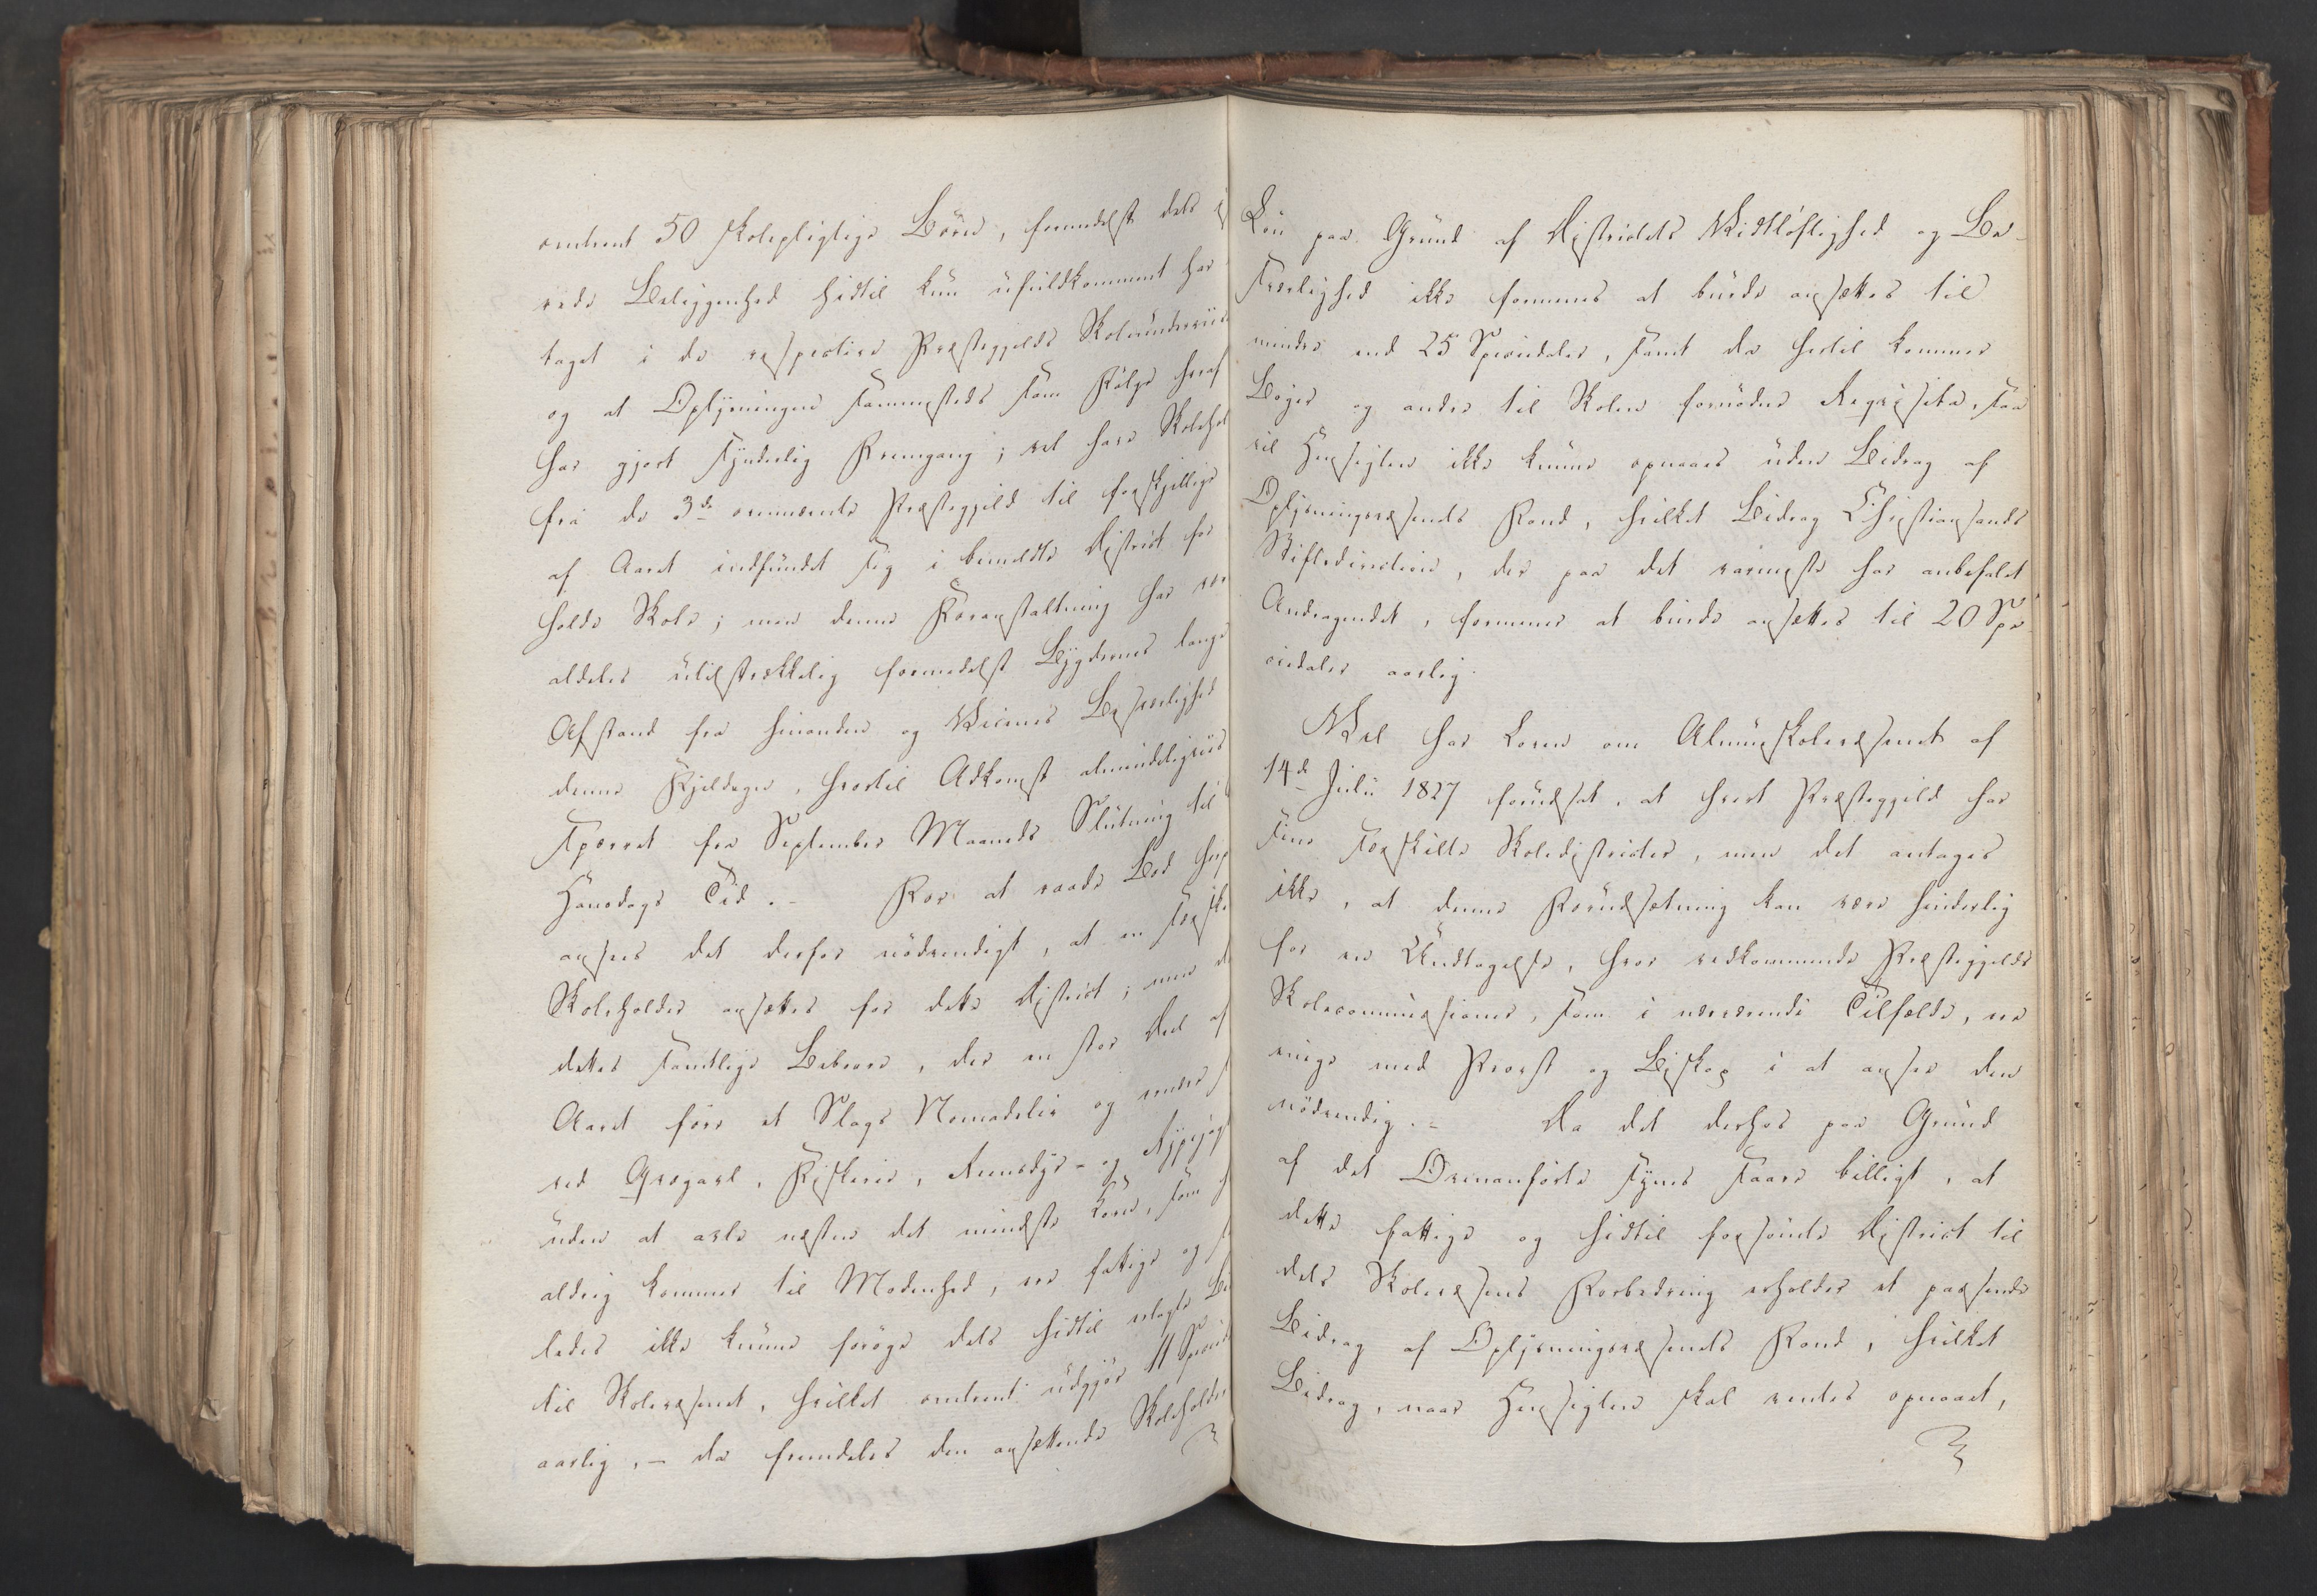 omtrent 50 skolepligtige Börn, formedelst dets
rede Beliggenhed hidtil kun ufuldkomment har
taget i de respective Præstegjelds Skoleunderviis
og at Oplysningen sammesteds som Fölge heraf
har gjort synderlig Fremgang; vel have Skolehol
fra de 3de ovennævnte Præstegjeld til forskjellige
af Aaret indfundet sig i bemeldte District for
holde Skole; men denne Foranstaltning har
aldeles utilstrækkelig formedelst Bygdernes lange
Afstand fra hinanden og Veienes Besværlighed
denne Fjeldegn, hvortil Adkomst almindeligviis
spærret fra September Maaneds Slutning til
Hansdags Tid. – For at raade Bod
ansees det derfor nödvendigt, at en særski
Skoleholder ansættes for dette District; men
dettes samtlige Beboere, der en stor Deel af
Aaret före et Slags Nomadeliv og
ved Qvægavl, Fiskerie, Reensdyr- og Rypejagt
uden at avle næsten det mindste Korn, som
aldrig kommer til Modenhed, ere fattige og
ledes ikke kunne foröge dets hidtil erlagte
til Skolevæsenet, hvilket omtrent udgjör 11 Specied
aarlig, – da fremdeles den ansættende Skoleholder
Lön paa Grund af Districtets Vidtlöftighed og Be-
sværlighed ikke formenes at burde ansættes til
mindre end 25 Speciedaler, samt da hertil kommer
Böger og andre til Skolen fornödne Reqvisita, saa
vil Hensigten ikke kunne opnaaes uden Bidrag af
Oplysningsvæsenets Fond, hvilket Bidrag Christiansands
Stiftsdirection, der paa det varmeste har anbefalet
Andragendet, formener at burde ansættes til 20 Spe-
ciedaler aarlig.
Vel har Loven om Almueskolevæsenet af
14de Julii 1827 forudsat, at hvert Præstegjeld har
sine særskilte Skoledistricter, men det antages
ikke, at denne Forudsætning kan være hinderlig
for en Undtagelse, hvor vedkommende Præstegjelds
Skolecommissioner, som i nærværende Tilfælde, ere
enige med Provst og Biskop i at ansee den
nödvendig. – Da det derhos paa Grund
af det Ovenanförte synes saare billigt, at
dette fattige og hidtil forsömte District til
dets Skolevæsens Forbedring erholder et passende
Bidrag af Oplysningsvæsenets Fond, hvilket
Bidrag, naar Hensigten skal ventes opnaaet,